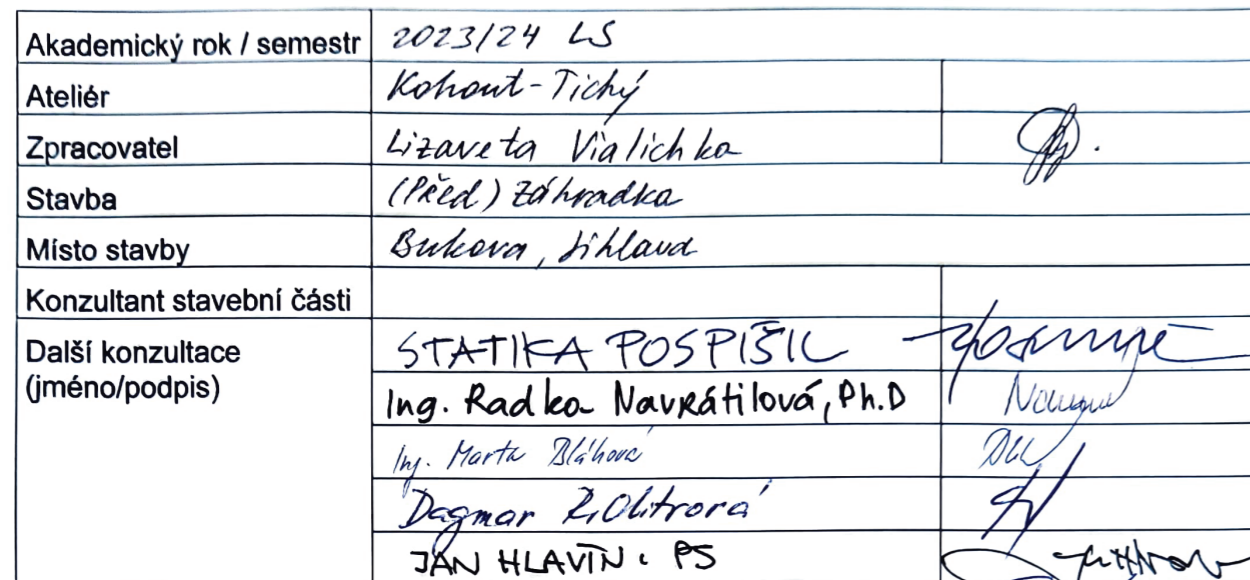 Akademický rok / semestr 2023/24 LS
Ateliér Kohout-Tichý
Zpracovatel Lizaveta Vialichka
Stavba (Před) záhradka
Místo stavby Bukova, Jihlava
Konzultant stavební části
Další konzultace STATIKA POSPÍŠIL
(jméno/podpis)
Ing. Radka Navrátilová, Ph.D
Ing. Marta Bláhová
Dagmar
JAN HLAVÍN PS